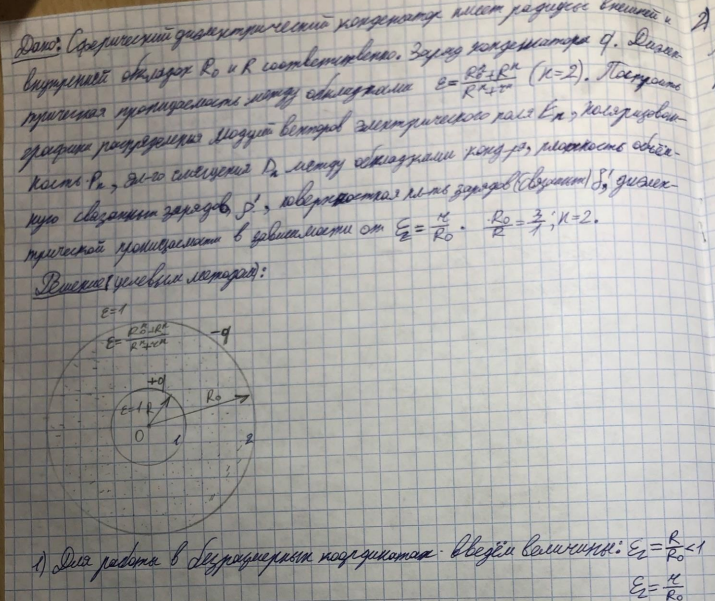 Дано: Сферический диэлектрический конденсатор имеет радиусы внешней и 2)
внутренней обкладок R₀ и R соответственно. Заряд конденсатора q. Диэлек-
трическая проницаемость между обкладками ε = (R₀ⁿ+Rⁿ)/(Rⁿ+rⁿ) (n=2). Построить
графики распределения модулей векторов электрического поля Eₙ, поляризован-
ность Pₙ, эл-го смещения Dₙ между обкладками конд-ра, плотность объём-
ную связанных зарядов ρ', поверхностная пл-ть зарядов (связанных) δ', диэлек-
трической проницаемости в зависимости от ξ₂ = r/R₀. R₀/R = 3/1; n=2.
Решение (целевым методом):
ε=1
ε = (R₀ⁿ+Rⁿ)/(Rⁿ+rⁿ) -q
+q
ε=1 R R₀
O 1 2
1) Для работы в безразмерных координатах введём величины: ξ₂ = R/R₀ < 1
ξ₂ = r/R₀